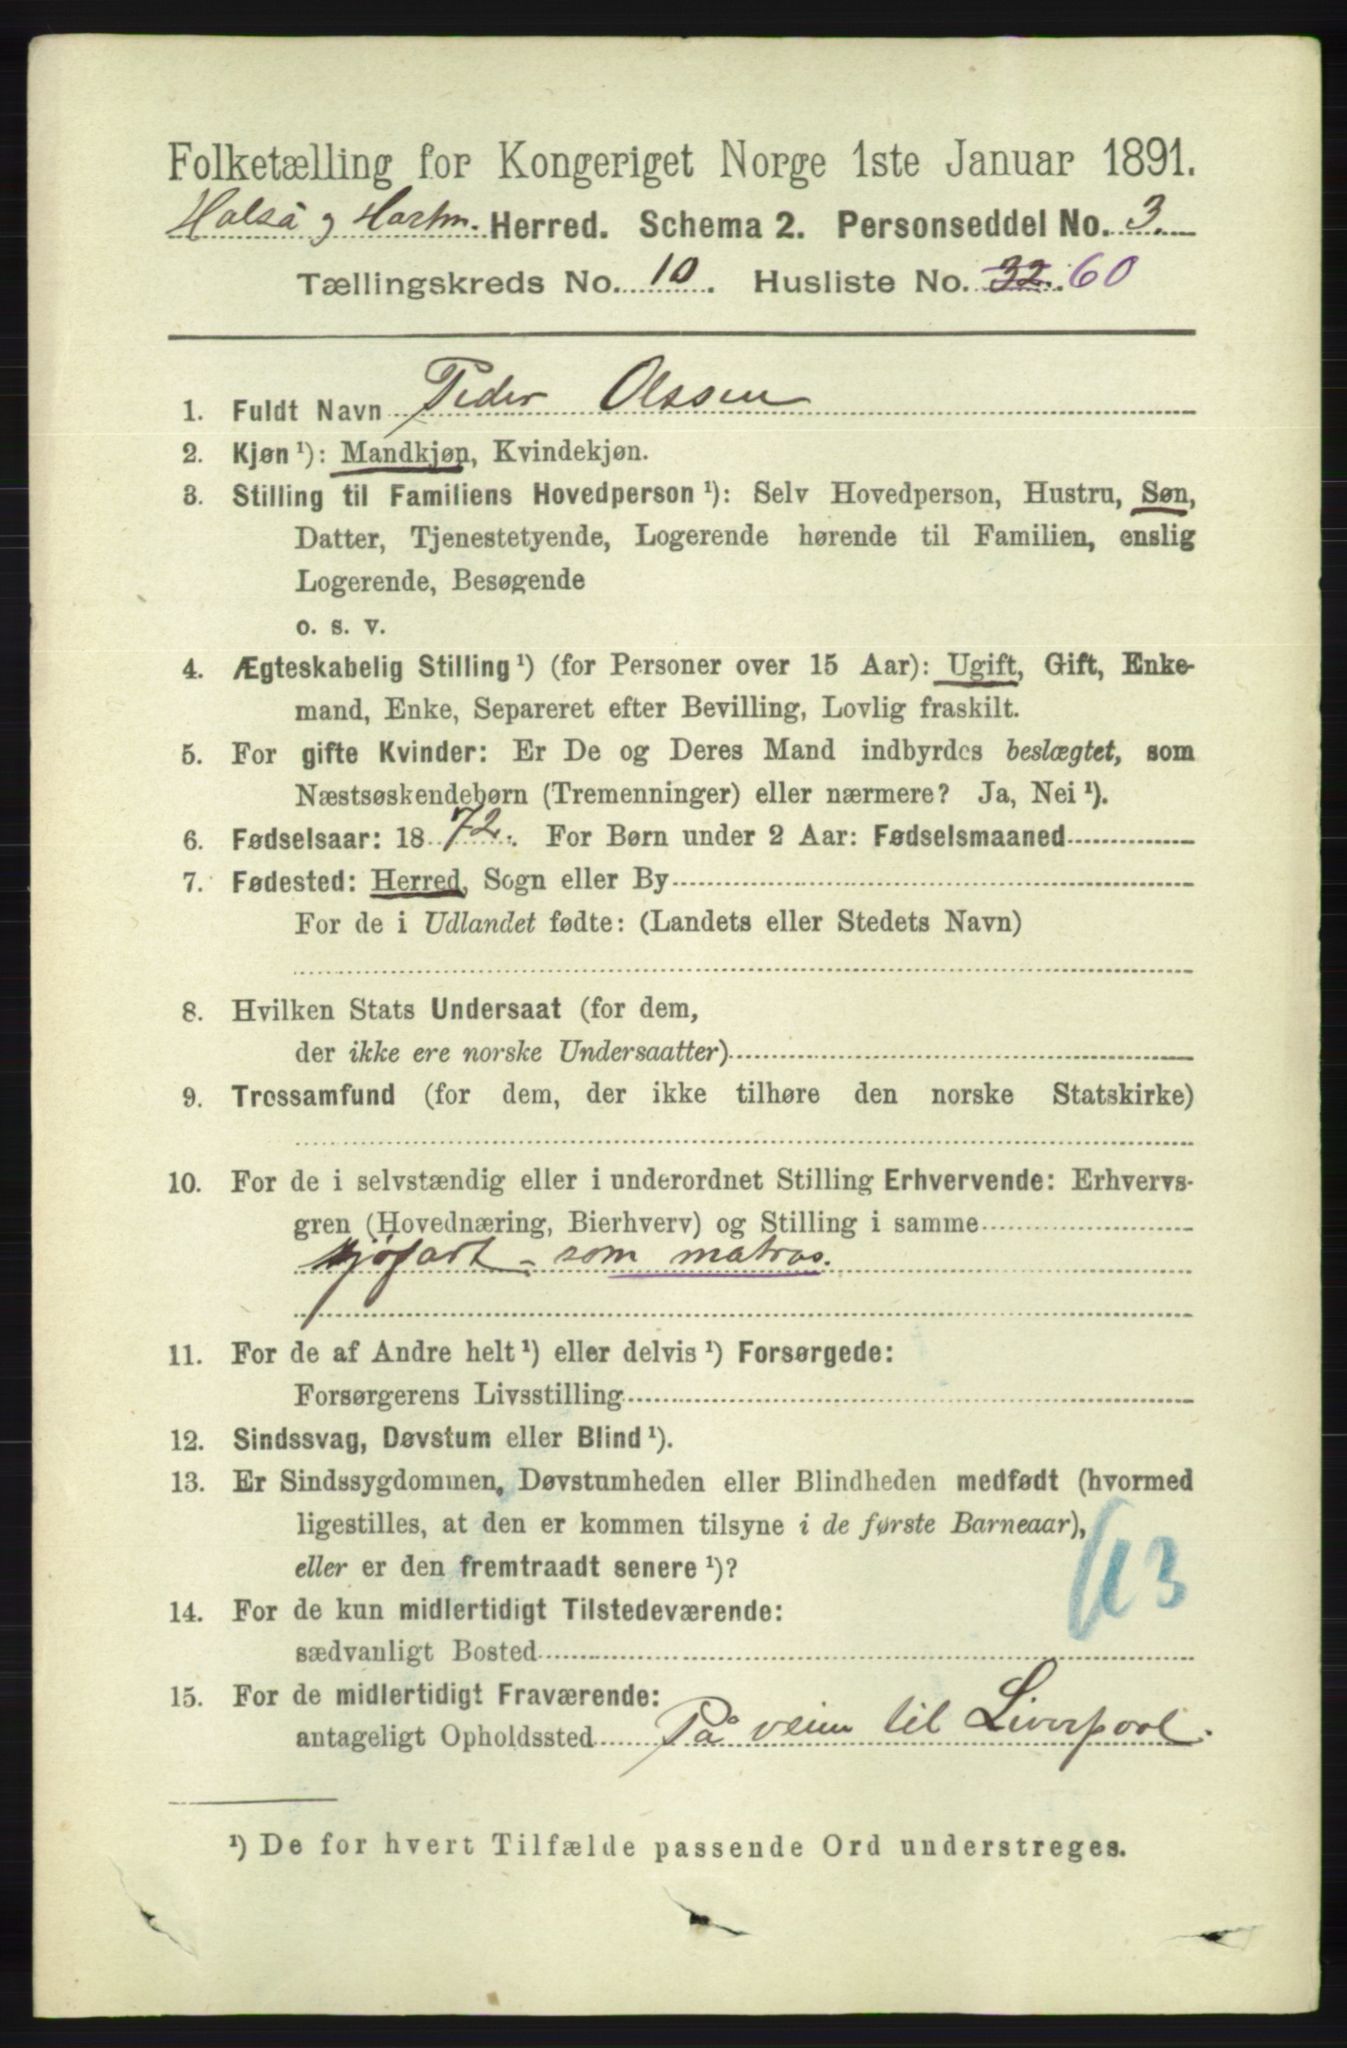 Folketælling for Kongeriget Norge 1ste Januar 1891.
Halså og Hartm. Herred. Schema 2. Personseddel No. 3.
Tællingskreds No. 10. Husliste No. 32. 60
1. Fuldt Navn Peder Olssen
2. Kjøn¹): Mandkjøn, Kvindekjøn.
3. Stilling til Familiens Hovedperson¹): Selv Hovedperson, Hustru, Søn,
Datter, Tjenestetyende, Logerende hørende til Familien, enslig
Logerende, Besøgende
o. s. v.
4. Ægteskabelig Stilling¹) (for Personer over 15 Aar): Ugift, Gift, Enke-
mand, Enke, Separeret efter Bevilling, Lovlig fraskilt.
5. For gifte Kvinder: Er De og Deres Mand indbyrdes beslægtet, som
Næstsøskendebørn (Tremenninger) eller nærmere? Ja, Nei¹).
6. Fødselsaar: 1872. For Børn under 2 Aar: Fødselsmaaned
7. Fødested: Herred, Sogn eller By
For de i Udlandet fødte: (Landets eller Stedets Navn)
8. Hvilken Stats Undersaat (for dem,
der ikke ere norske Undersaatter)
9. Trossamfund (for dem, der ikke tilhøre den norske Statskirke)
10. For de i selvstændig eller i underordnet Stilling Erhvervende: Erhvervs-
gren (Hovednæring, Bierhverv) og Stilling i samme
sjøfart - som matros.
11. For de af Andre helt¹) eller delvis¹) Forsørgede:
Forsørgerens Livsstilling
12. Sindssvag, Døvstum eller Blind¹).
13. Er Sindssygdommen, Døvstumheden eller Blindheden medfødt (hvormed
ligestilles, at den er kommen tilsyne i de første Barneaar),
eller er den fremtraadt senere¹)?
14. For de kun midlertidigt Tilstedeværende:
sædvanligt Bosted
15. For de midlertidigt Fraværende:
antageligt Opholdssted På veien til Liverpool.
¹) De for hvert Tilfælde passende Ord understreges.